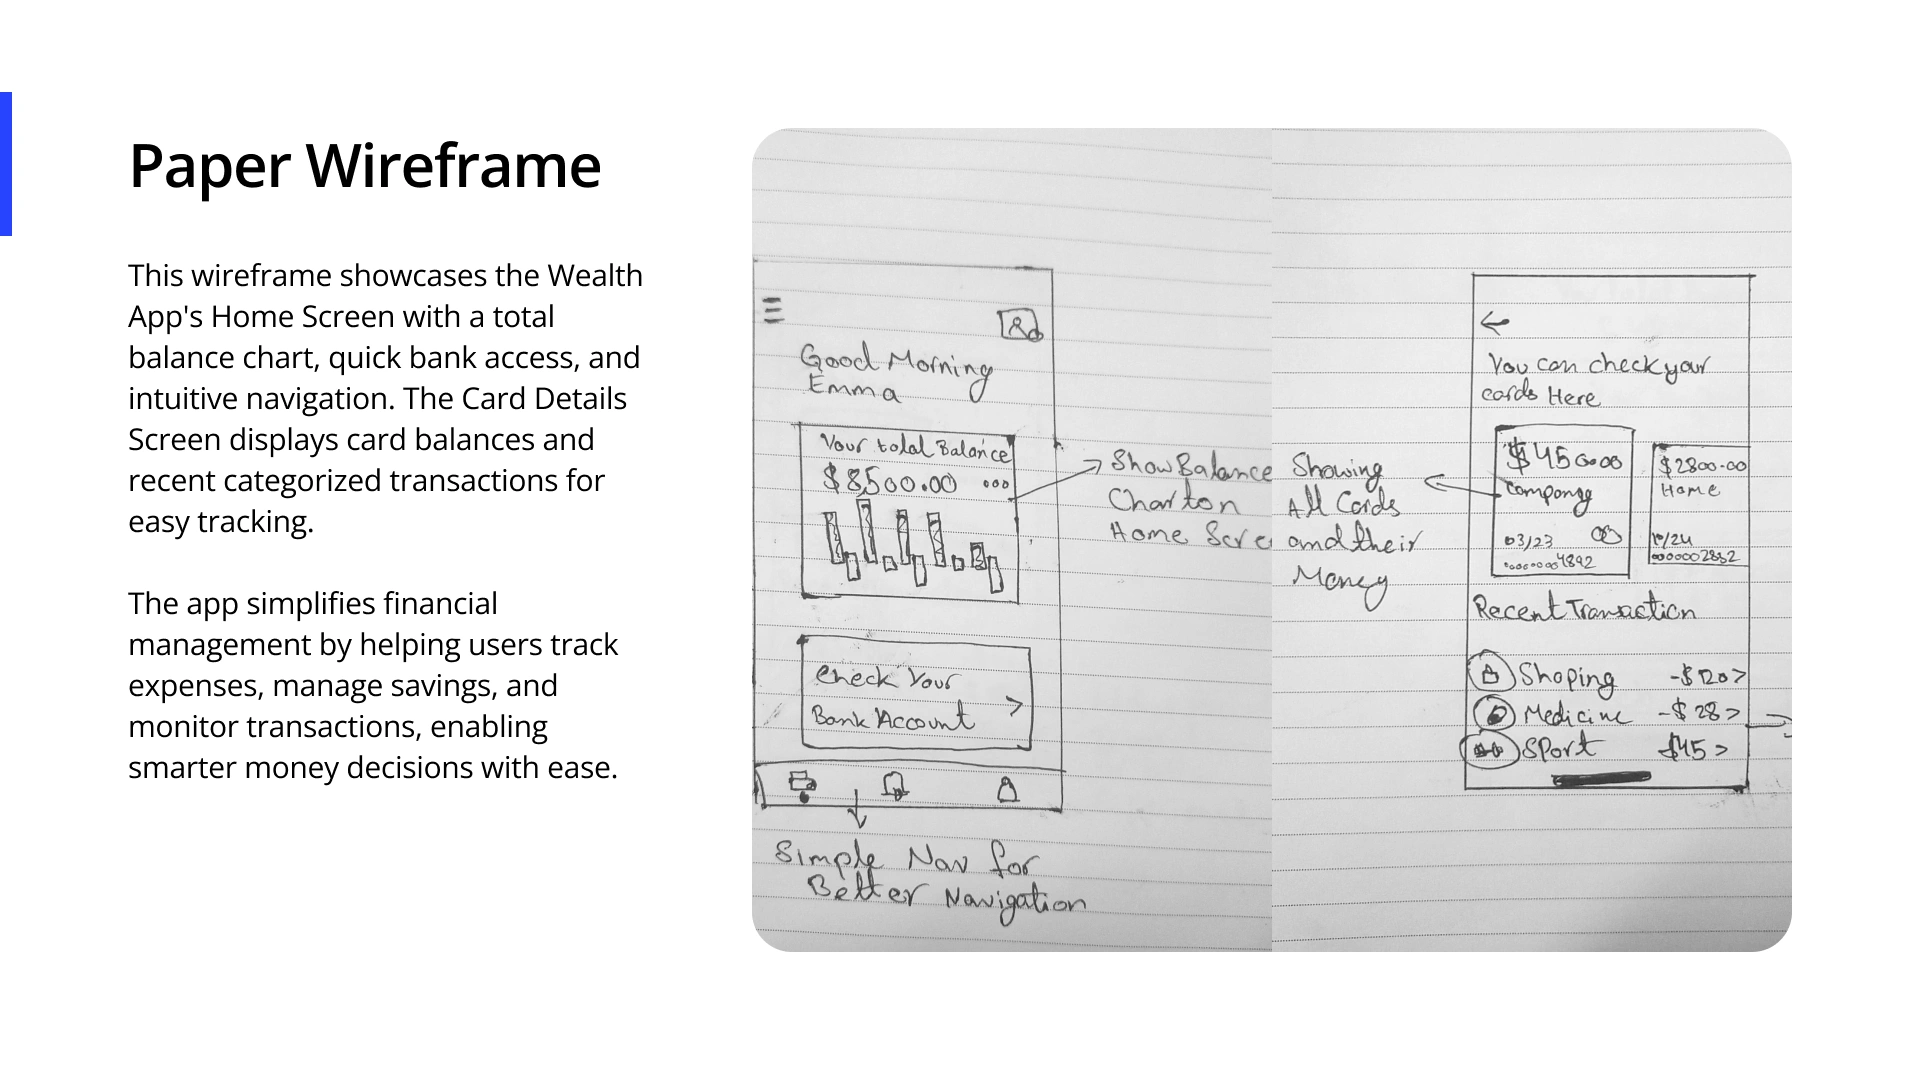 Paper Wireframe
This wireframe showcases the Wealth
App's Home Screen with a total
balance chart, quick bank access, and
intuitive navigation. The Card Details
Screen displays card balances and
recent categorized transactions for
easy tracking.
The app simplifies financial
management by helping users track
expenses, manage savings, and
monitor transactions, enabling
smarter money decisions with ease.
Good Morning
Emma
Your total Balance
$8,500.00
Show Balance
Chart on
Home Scre
Check Your
Bank Account
>
Simple Nav for
Better Navigation
You can check your
cards Here
Showing
All Cards
and their
Money
$450.00
company
03/23
4892
$2800.00
Home
/24
Recent Transaction
Shoping -$120 >
Medicine -$28 >
Sport $45 >